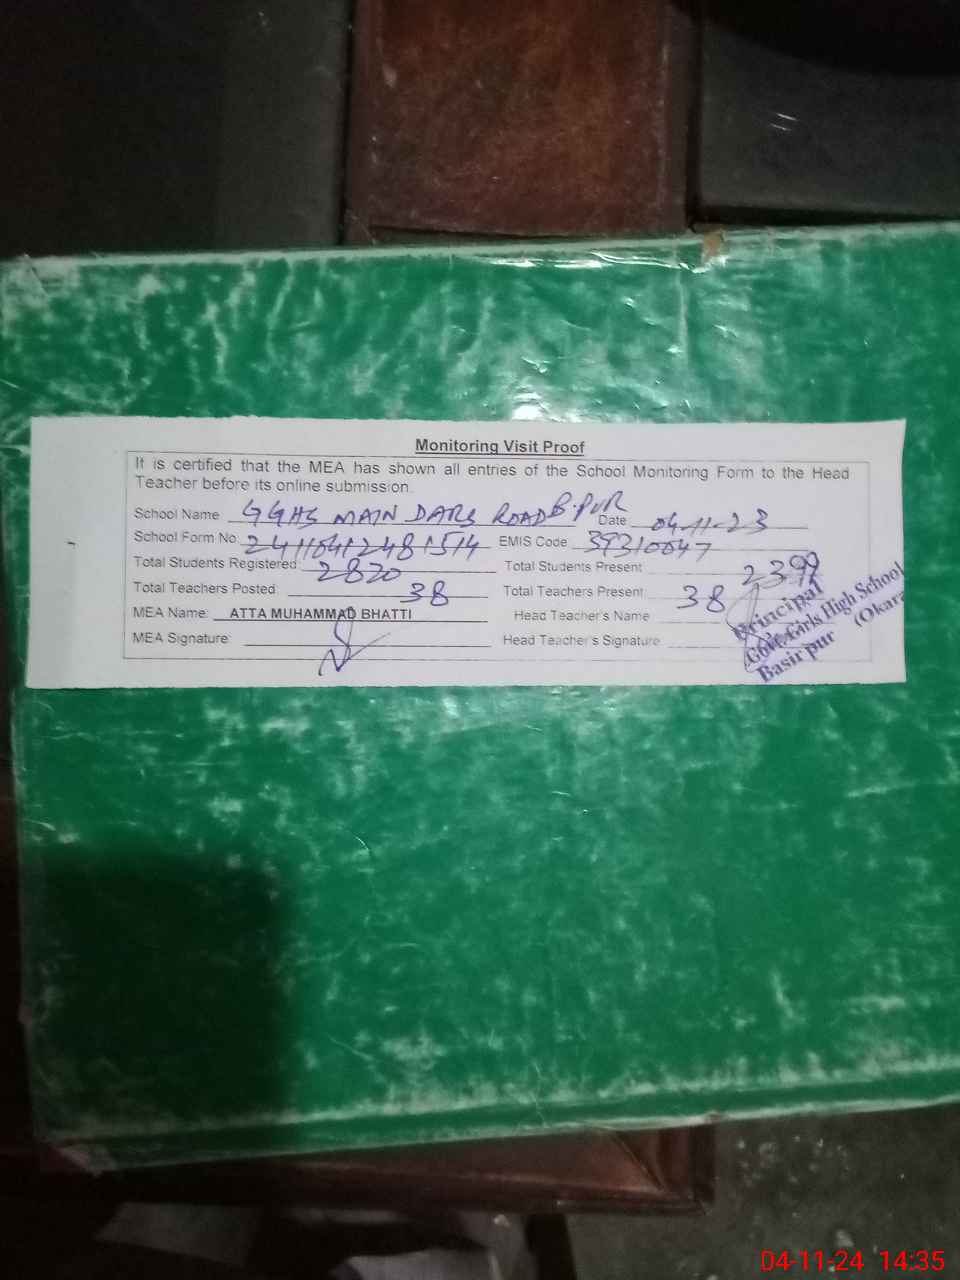 Monitoring Visit Proof
It is certified that the MEA has shown all entries of the School Monitoring Form to the Head
Teacher before its online submission.
School Name GGHS MAIN DARS ROAD B.PUR Date 04-11-23
School Form No. 24110412481514 EMIS Code 39310047
Total Students Registered: 2820 Total Students Present
Total Teachers Posted: 38 Total Teachers Present: 38
MEA Name: ATTA MUHAMMAD BHATTI Head Teacher's Name
MEA Signature: Head Teacher's Signature
Principal
Govt. Girls High School
Basir pur (Okara
04-11-24 14:35